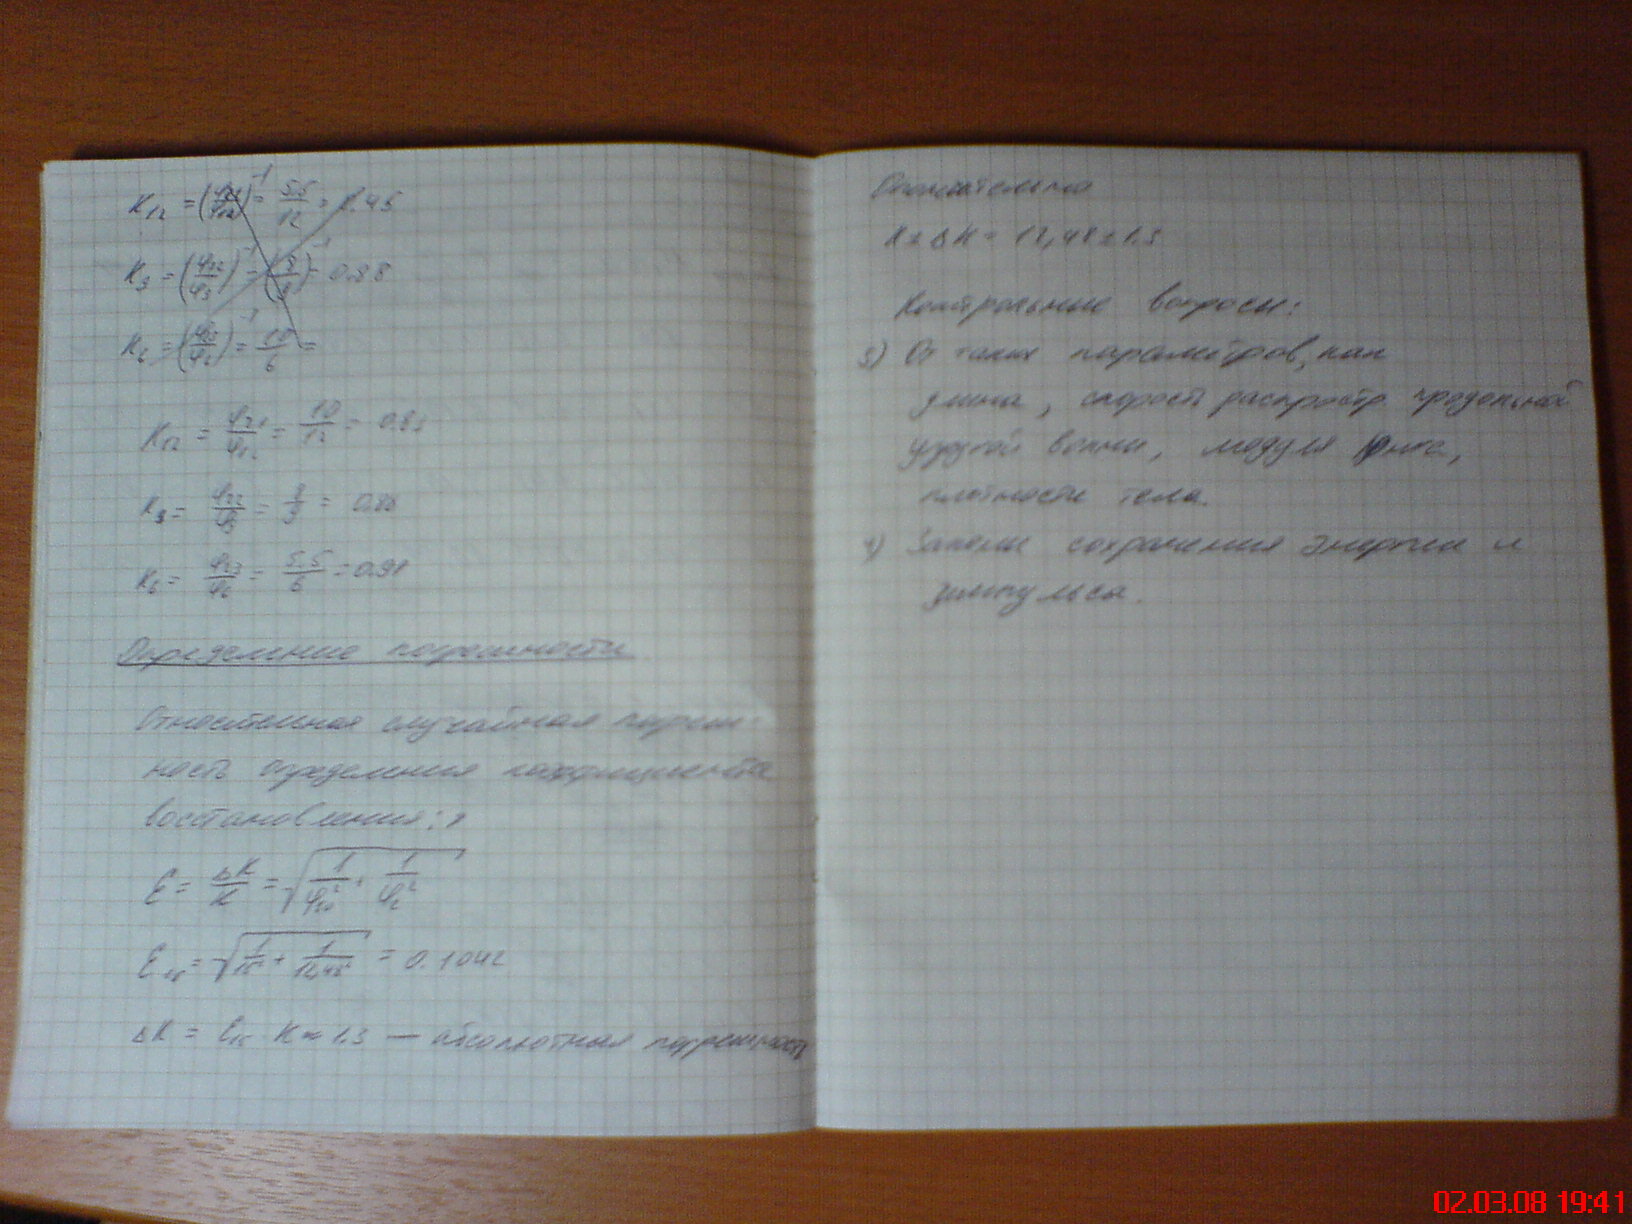 K₁₂ = (φ₂₁/φ₁₂)⁻¹ = 5.5/12 = 0.45
K₉ = (φ₂₂/φ₉)⁻¹ = (8/9)⁻¹ = 0.88
K₆ = (φ₂₃/φ₆)⁻¹ = 10/6 =
K₁₂ = φ₂₁/φ₁₂ = 10/12 = 0.83
K₉ = φ₂₂/φ₉ = 8/9 = 0.88
K₆ = φ₂₃/φ₆ = 5.5/6 = 0.91
Определение погрешности
Относительная случайная погреш-
ность определения коэффициента
восстановления:
E = ΔK/K = √(1/φ₂₀² + 1/φ₂²)
= 0.1042
ΔK = K ≈ 1.3 — абсолютная погрешность
Окончательно
K ± ΔK = 12,48 ± 1.3
Контрольные вопросы:
3) От таких параметров, как
длина, скорость распростр продольной
упругой волны, модуля Юнга,
плотности тела.
4) Законы сохранения энергии и
импульса.
02.03.08 19:41